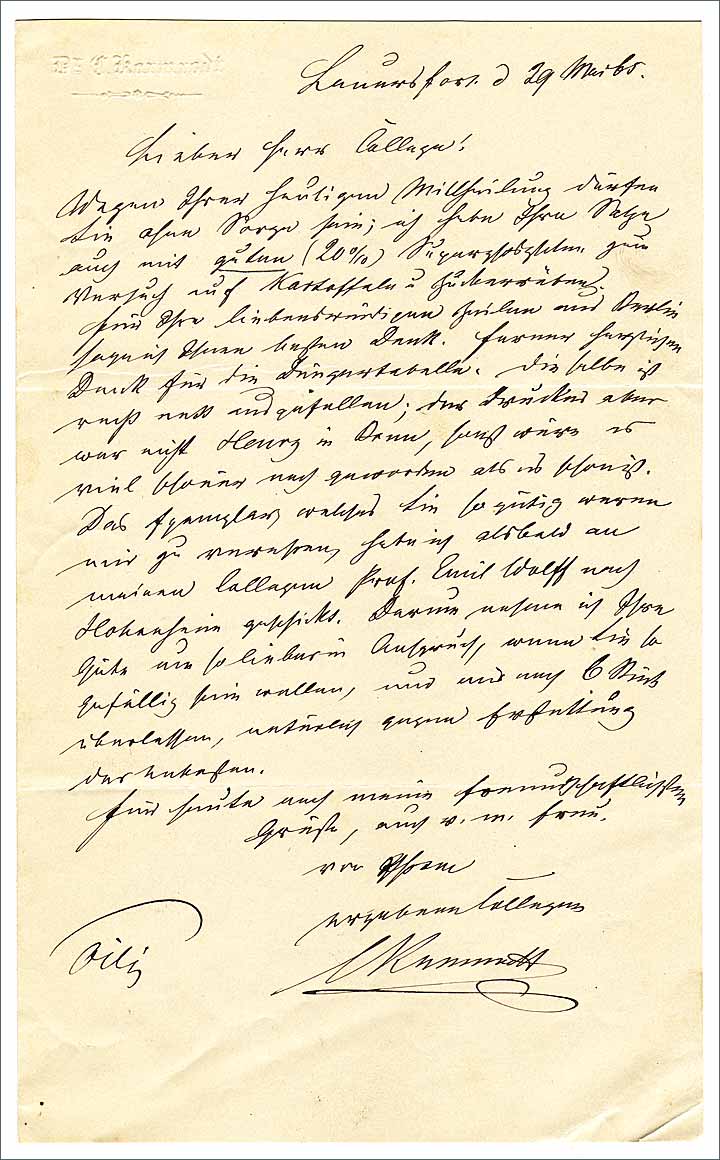 Dr. C. Karmrodt
Lauersfort d 29 Mai 65.
Lieber Herr College!
Wegen Ihrer heutigen Mittheilung dürfen
Sie ohne Sorge sein; ich habe Ihre Salze
auch mit guten (20%) Superphosphaten zum
Versuch auf Kartoffeln u Zuckerrüben.
Für Ihre liebenswürdigen Zeilen aus Berlin
sage ich Ihnen besten Dank. Ferner herzlichen
Dank für die Düngertabelle. Dieselbe ist
recht nett ausgefallen; der Drucker aber
war nicht Henry in Bonn, sonst wäre es
viel schöner noch geworden als es schon ist.
Das Exemplar, welches Sie so gütig waren
mir zu verehren, habe ich alsbald an
meinen Collegen Prof. Emil Wolff nach
Hohenheim geschickt. Darum nehme ich Ihre
Güte um so lieber in Anspruch, wenn Sie so
gefällig sein wollen, und uns noch 6 Stück
überlassen, natürlich gegen Erstattung
der Unkosten.
Für heute noch meine freundschaftlichsten
Grüße, auch v. m. Frau.
von Ihrem
ergebenen Collegen
C Karmrodt
Eilig